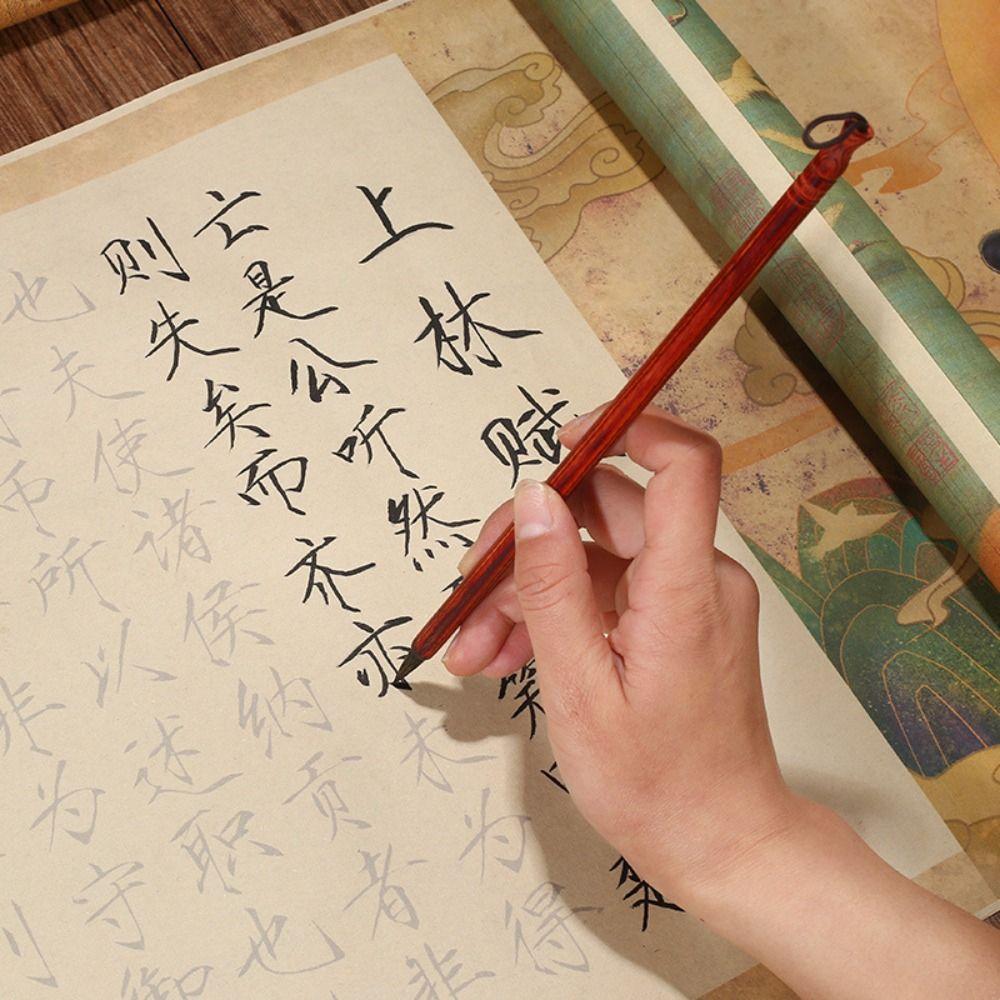 上林赋
亡是公听然笑楚
则失矣而齐亦未为得
也夫使诸侯纳贡者非
币所以述职也
非为守御